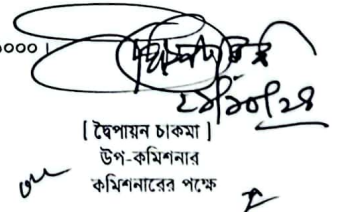 ০০০।
২৮/১০/২৪
[ দ্বৈপায়ন চাকমা ]
উপ-কমিশনার
কমিশনারের পক্ষে